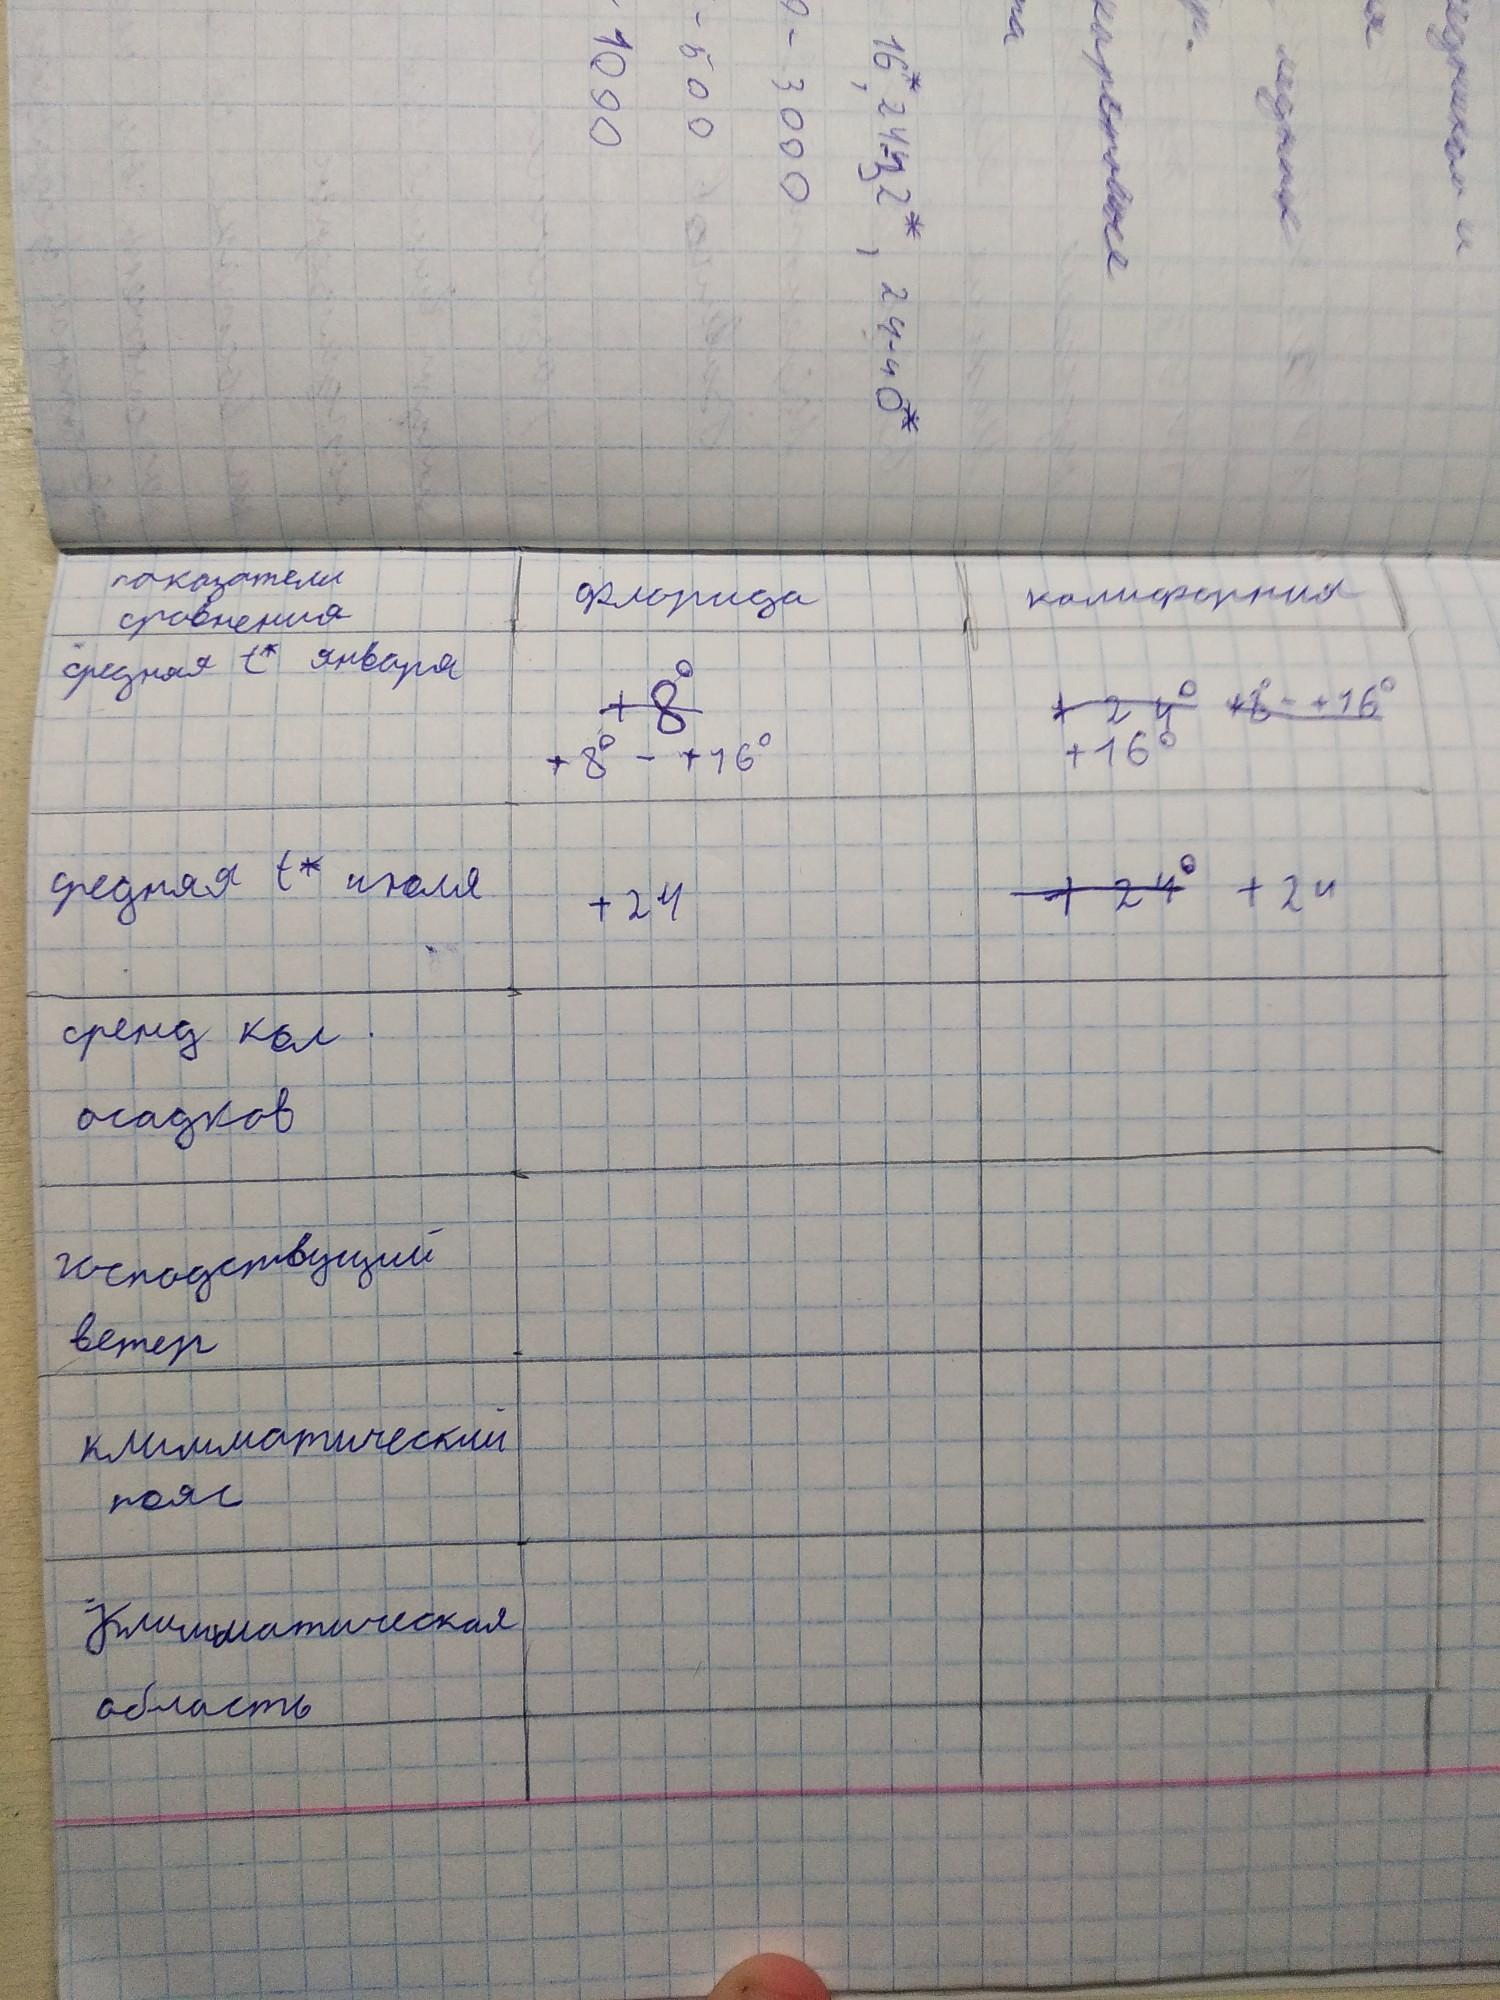 16*, 24-32*, 24-40*
- 3000
- 500
1000
показатели сравнения
Флорида
калифорния
средняя t* января
+8°
+8° - +16°
+24° +8 - +16°
+16°
средняя t* июля
+24
+24° +24
сренд кол.
осадков
господствущий
ветер
климматический
пояс
Климматическая
область